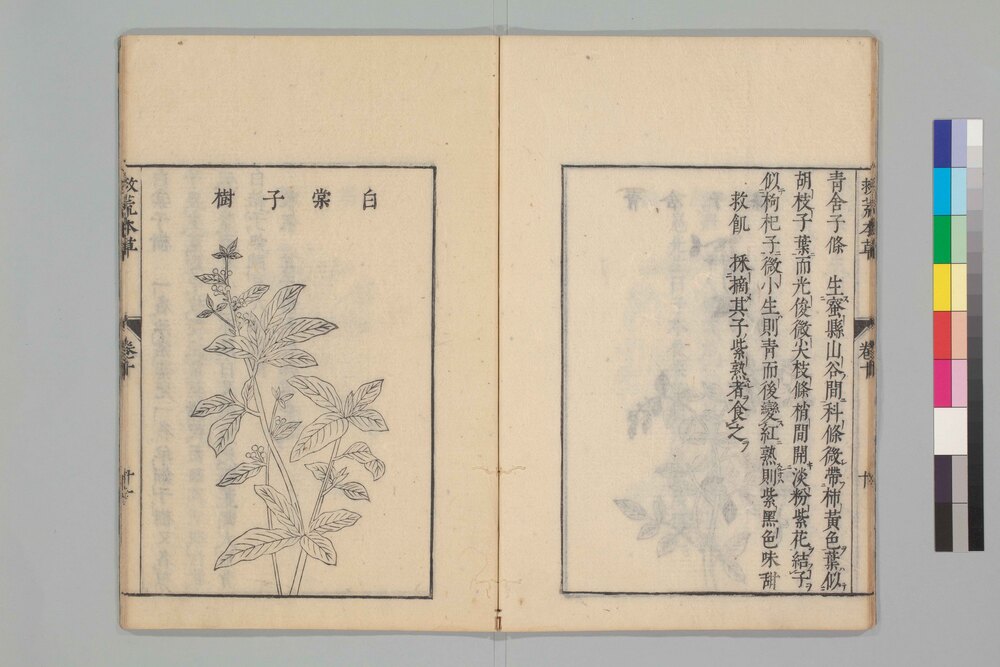 救荒本草
卷十
十
青舍子條　生蜜縣山谷間科條微帶柿黃色葉似
胡枝子葉而光俊微尖枝條梢間開淡粉紫花結子
似枸杞子微小生則青而後變紅熟則紫黑色味甜
救飢　採摘其子紫熟者食之
白棠子樹
救荒本草
卷十
十一